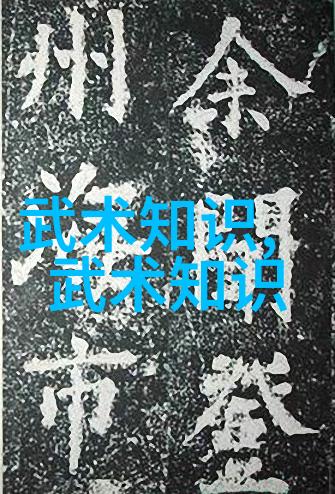 余聞登
州海市
武术知识,
武术知识